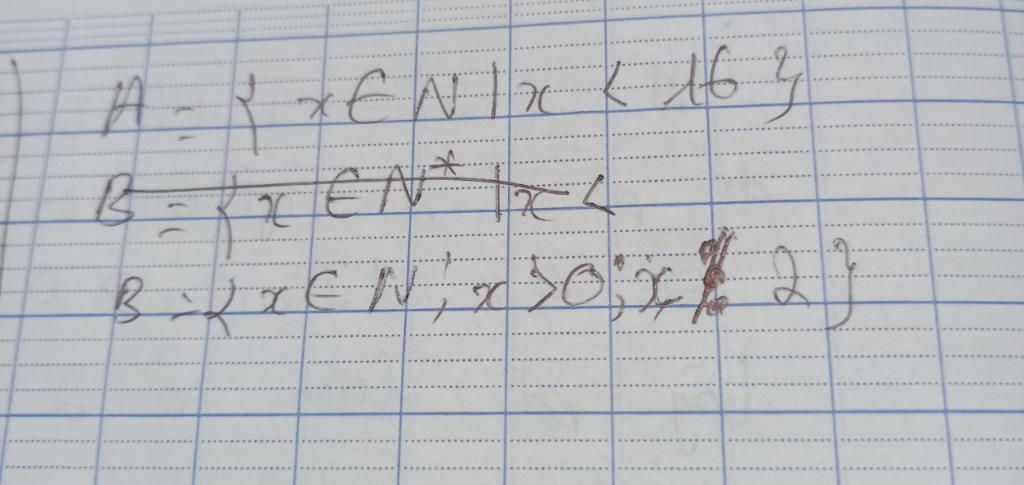 A = { x ∈ N | x < 16 }
B = { x ∈ N* | x <
B = { x ∈ N ; x > 0 ; x 2 }